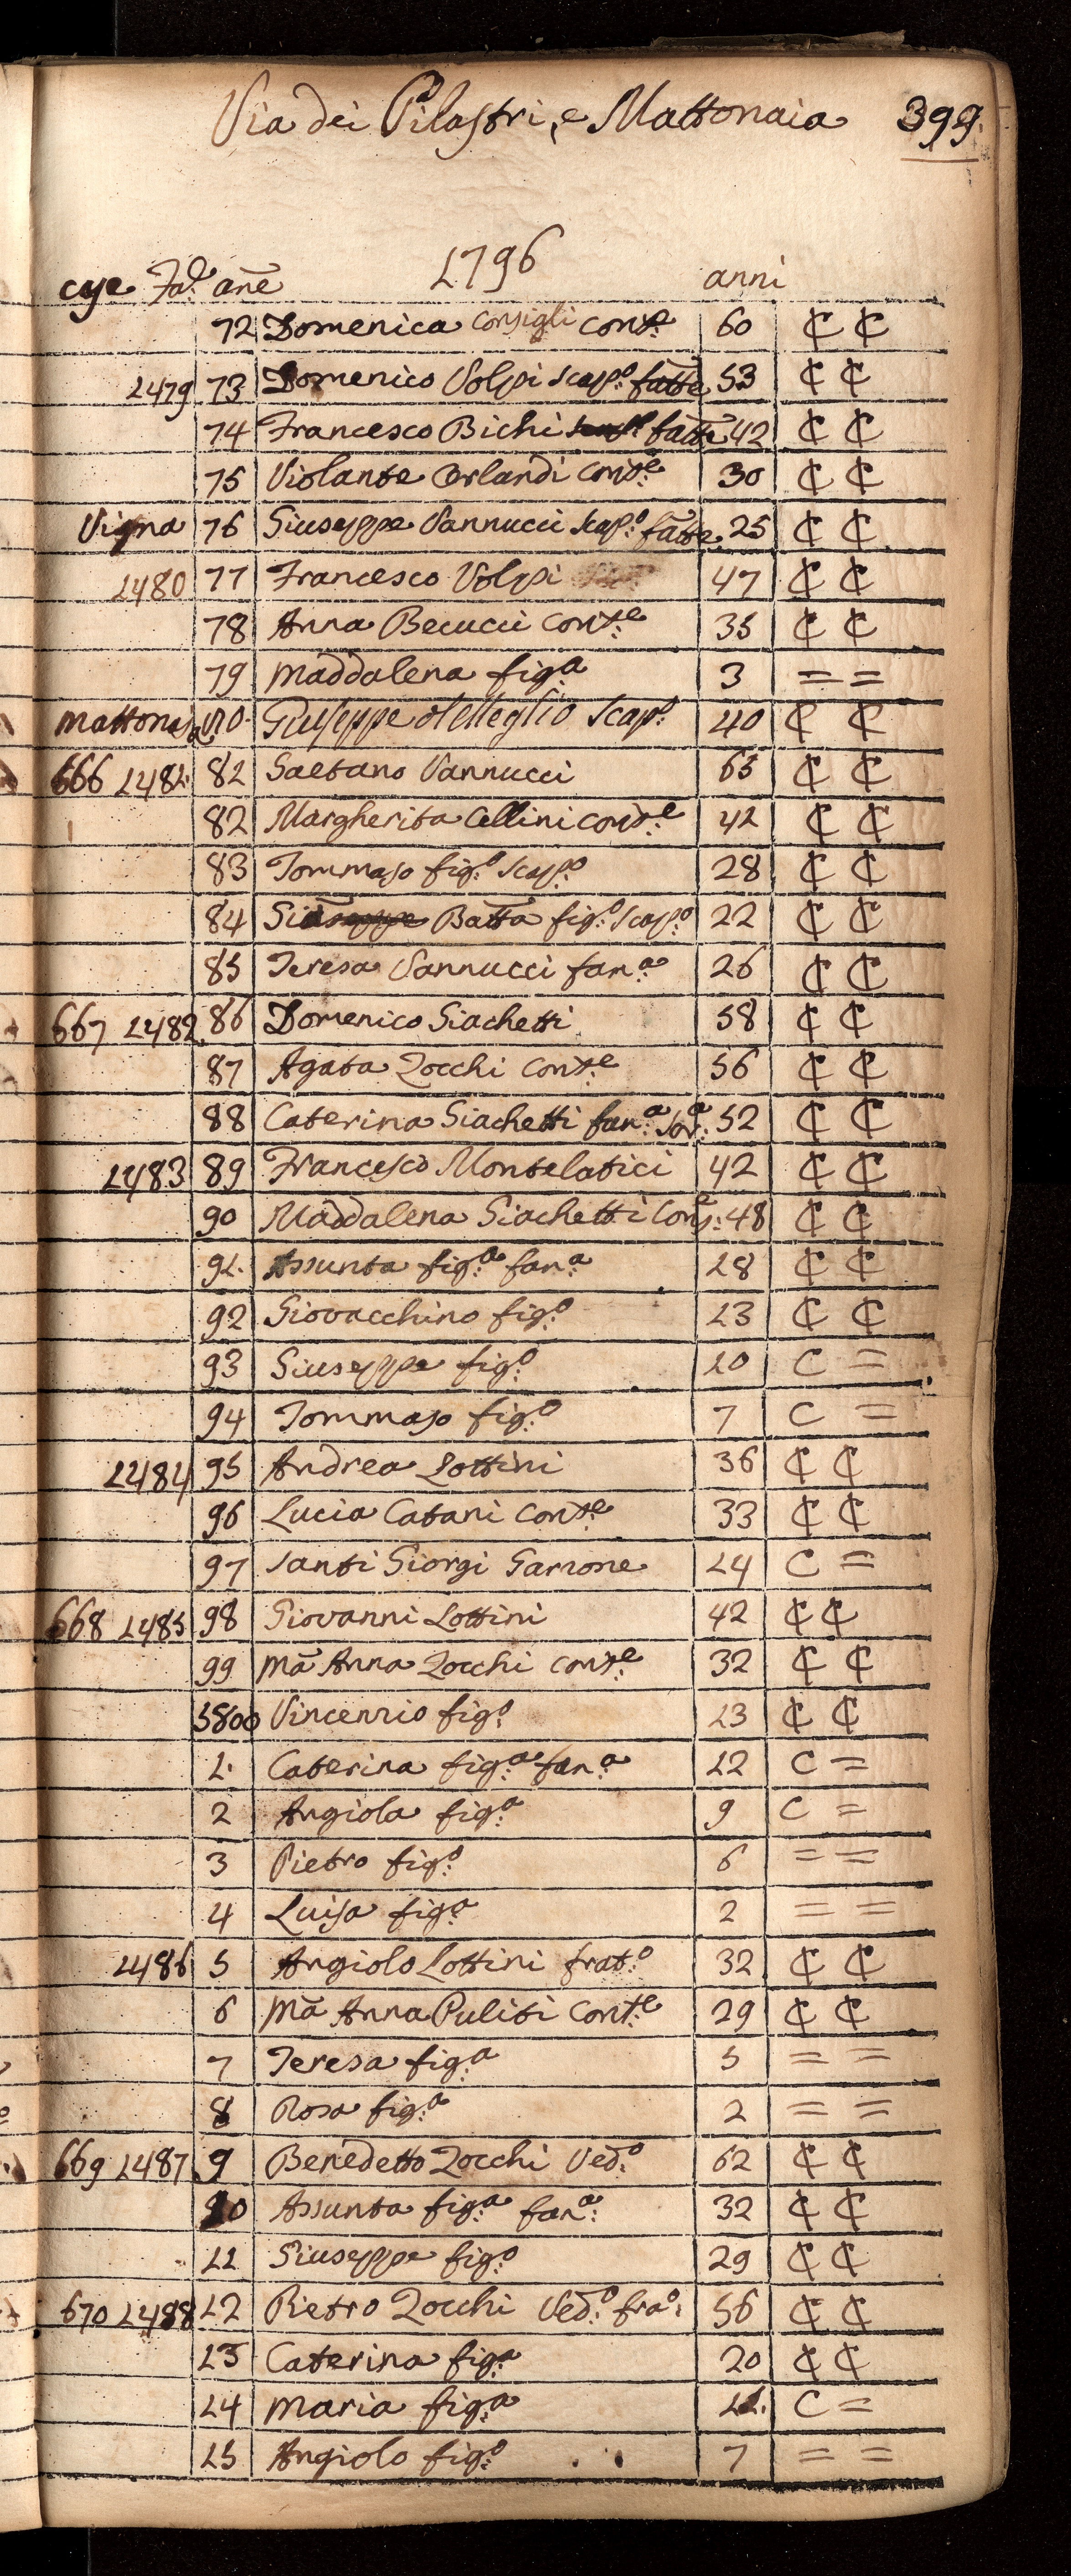 Via dei Pilastri, e Mattonaia 399.
1796
cye Fa.e ane anni
72 Domenica Consigli Cons.e 60 ₵ ₵
1479 73 Domenico Volpi scap.o fatt.e 53 ₵ ₵
74 Francesco Bichi fatt.e 42 ₵ ₵
75 Violante Orlandi cons.e 30 ₵ ₵
Vigna 76 Giuseppe Vannucci scap.o fatt.e 25 ₵ ₵
1480 77 Francesco Volpi 47 ₵ ₵
78 Anna Becucci Cons.e 35 ₵ ₵
79 Maddalena fig.a 3 = =
Mattonaja Giuseppe scap.o 40 ₵ ₵
666 1481. 81 Gaetano Vannucci 65 ₵ ₵
82 Margherita Cellini cons.e 42 ₵ ₵
83 Tommaso fig.o scap.o 28 ₵ ₵
84 Gio Batta fig.o scap.o 22 ₵ ₵
85 Teresa Vannucci fan.a 26 ₵ ₵
667 1482. 86 Domenico Giachetti 58 ₵ ₵
87 Agata Zocchi Cons.e 56 ₵ ₵
88 Caterina Giachetti fan.a Sor.a 52 ₵ ₵
1483 89 Francesco Montelatici 42 ₵ ₵
90 Maddalena Giachetti Cons.e 48 ₵ ₵
91. Assunta fig.a fan.a 18 ₵ ₵
92 Giovacchino fig.o 13 ₵ ₵
93 Giuseppe fig.o 10 C =
94 Tommaso fig.o 7 C =
1484 95 Andrea Lottini 36 ₵ ₵
96 Lucia Catani Cons.e 33 ₵ ₵
97 Santi Giorgi Garzone 14 C =
668 1485 98 Giovanni Lottini 42 ₵ ₵
99 Ma Anna Zocchi Cons.e 32 ₵ ₵
5800 Vincenzio fig.o 13 ₵ ₵
1. Caterina fig.a fan.a 12 C =
2 Angiola fig.a 9 C =
3 Pietro fig.o 6 = =
4 Luisa fig.a 2 = =
1486 5 Angiolo Lottini frat.o 32 ₵ ₵
6 Ma Anna Puliti Cons.e 29 ₵ ₵
7 Teresa fig.a 5 = =
8 Rosa fig.a 2 = =
669 1487 9 Benedetto Zocchi Ved.o 62 ₵ ₵
10 Assunta fig.a fan.a 32 ₵ ₵
11 Giuseppe fig.o 29 ₵ ₵
670 1488 12 Pietro Zocchi Ved.o fra.o 56 ₵ ₵
13 Caterina fig.a 20 ₵ ₵
14 Maria fig.a 11. C =
15 Angiolo fig.o 7 = =